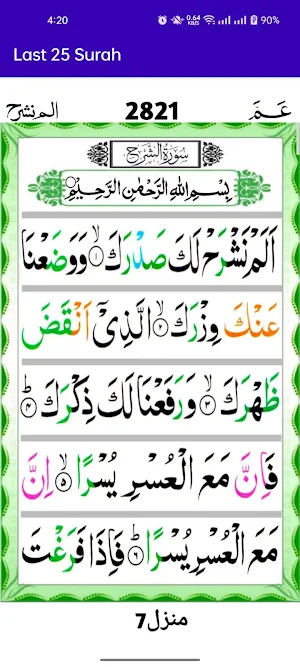 4:20 0.64 KB/S 90%
Last 25 Surah
الم نشرح 2821 عَمَّ
سُوْرَةُ الشَّرْحِ
بِسْمِ اللّٰهِ الرَّحْمٰنِ الرَّحِيْمِ
اَلَمْ نَشْرَحْ لَكَ صَدْرَكَ ۙ۝۱ وَوَضَعْنَا
عَنْكَ وِزْرَكَ ۙ۝۲ الَّذِیْۤ اَنْقَضَ
ظَهْرَكَ ۙ۝۳ وَرَفَعْنَا لَكَ ذِكْرَكَ ؕ۝۴
فَاِنَّ مَعَ الْعُسْرِ یُسْرًا ۙ۝۵ اِنَّ
مَعَ الْعُسْرِ یُسْرًا ؕ۝۶ فَاِذَا فَرَغْتَ
منزل7